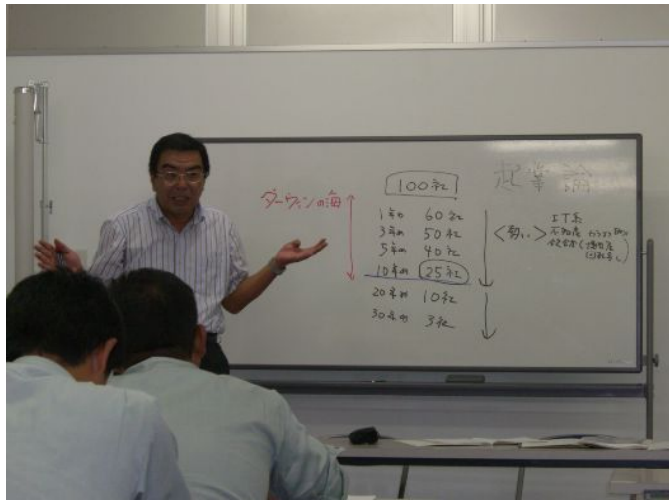 起業論
100社
ダーウィンの海
1年め 60社
3年め 50社
5年め 40社
10年め 25社
20年め 10社
30年め 3社
<勢い>
IT系
不動産